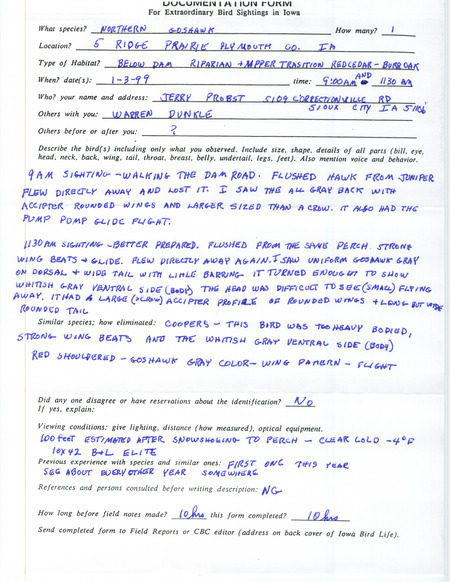 DOCUMENTATION FORM
For Extraordinary Bird Sightings in Iowa
What species? NORTHERN GOSHAWK How many? 1
Location? 5 RIDGE PRAIRIE PLYMOUTH CO. IA
Type of Habitat? BELOW DAM RIPARIAN + UPPER TRASITION REDCEDAR - BUR OAK
When? date(s): 1-3-99 time: 9:00AM AND 1130 AM
Who? your name and address: JERRY PROBST 5109 CORRECTIONVILLE RD
SIOUX CITY IA 51106
Others with you: WARREN DUNKLE
Others before or after you: ?
Describe the bird(s) including only what you observed. Include size, shape, details of all parts (bill, eye,
head, neck, back, wing, tail, throat, breast, belly, undertail, legs, feet). Also mention voice and behavior.
9 AM SIGHTING - WALKING THE DAM ROAD. FLUSHED HAWK FROM JUNIPER
FLEW DIRECTLY AWAY AND LOST IT. I SAW THE ALL GRAY BACK WITH
ACCIPTER ROUNDED WINGS AND LARGER SIZED THAN A CROW. IT ALSO HAD THE
PUMP PUMP GLIDE FLIGHT.
1130 AM SIGHTING - BETTER PREPARED. FLUSHED FROM THE SAME PERCH. STRONG
WING BEATS + GLIDE. FLEW DIRECTLY AWAY AGAIN. I SAW UNIFORM GOSHAWK GRAY
ON DORSAL + WIDE TAIL WITH LITTLE BARRING. IT TURNED ENOUGHT TO SHOW
WHITISH GRAY VENTRAL SIDE (BODY) THE HEAD WAS DIFFICULT TO SEE (SMALL) FLYING
AWAY. IT HAD A LARGE (>CROW) ACCIPTER PROFILE OF ROUNDED WINGS + LONG BUT WIDE
ROUNDED TAIL
Similar species; how eliminated: COOPERS - THIS BIRD WAS TOO HEAVY BODIED,
STRONG WING BEATS AND THE WHITISH GRAY VENTRAL SIDE (BODY)
RED SHOULDERED - GOSHAWK GRAY COLOR - WING PATTERN - FLIGHT
Did any one disagree or have reservations about the identification? NO
If yes, explain:
Viewing conditions: give lighting, distance (how measured), optical equipment.
100 feet ESTIMATED AFTER SNOWSHOEING TO PERCH - CLEAR COLD -4°F
10X42 B+L ELITE
Previous experience with species and similar ones: FIRST ONE THIS YEAR
SEE ABOUT EVERY OTHER YEAR SOMEWHERE
References and persons consulted before writing description: NG
How long before field notes made? 10 hrs this form completed? 10 hrs
Send completed form to Field Reports or CBC editor (address on back cover of Iowa Bird Life).